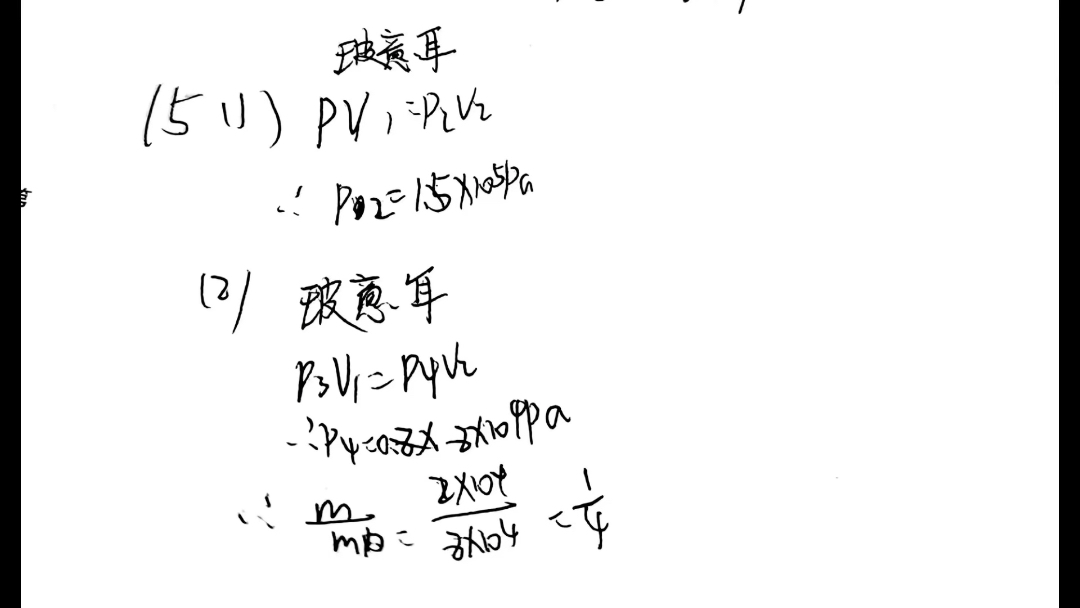 玻意耳
(5 (1) PV₁=P₂V₂
∴ P₂=1.5×10⁵Pa
(2) 玻意耳
P₃V₁=P₄V₂
∴P₄= 8×10⁴Pa
∴ m/m = 2×10⁴/8×10⁴ = 1/4